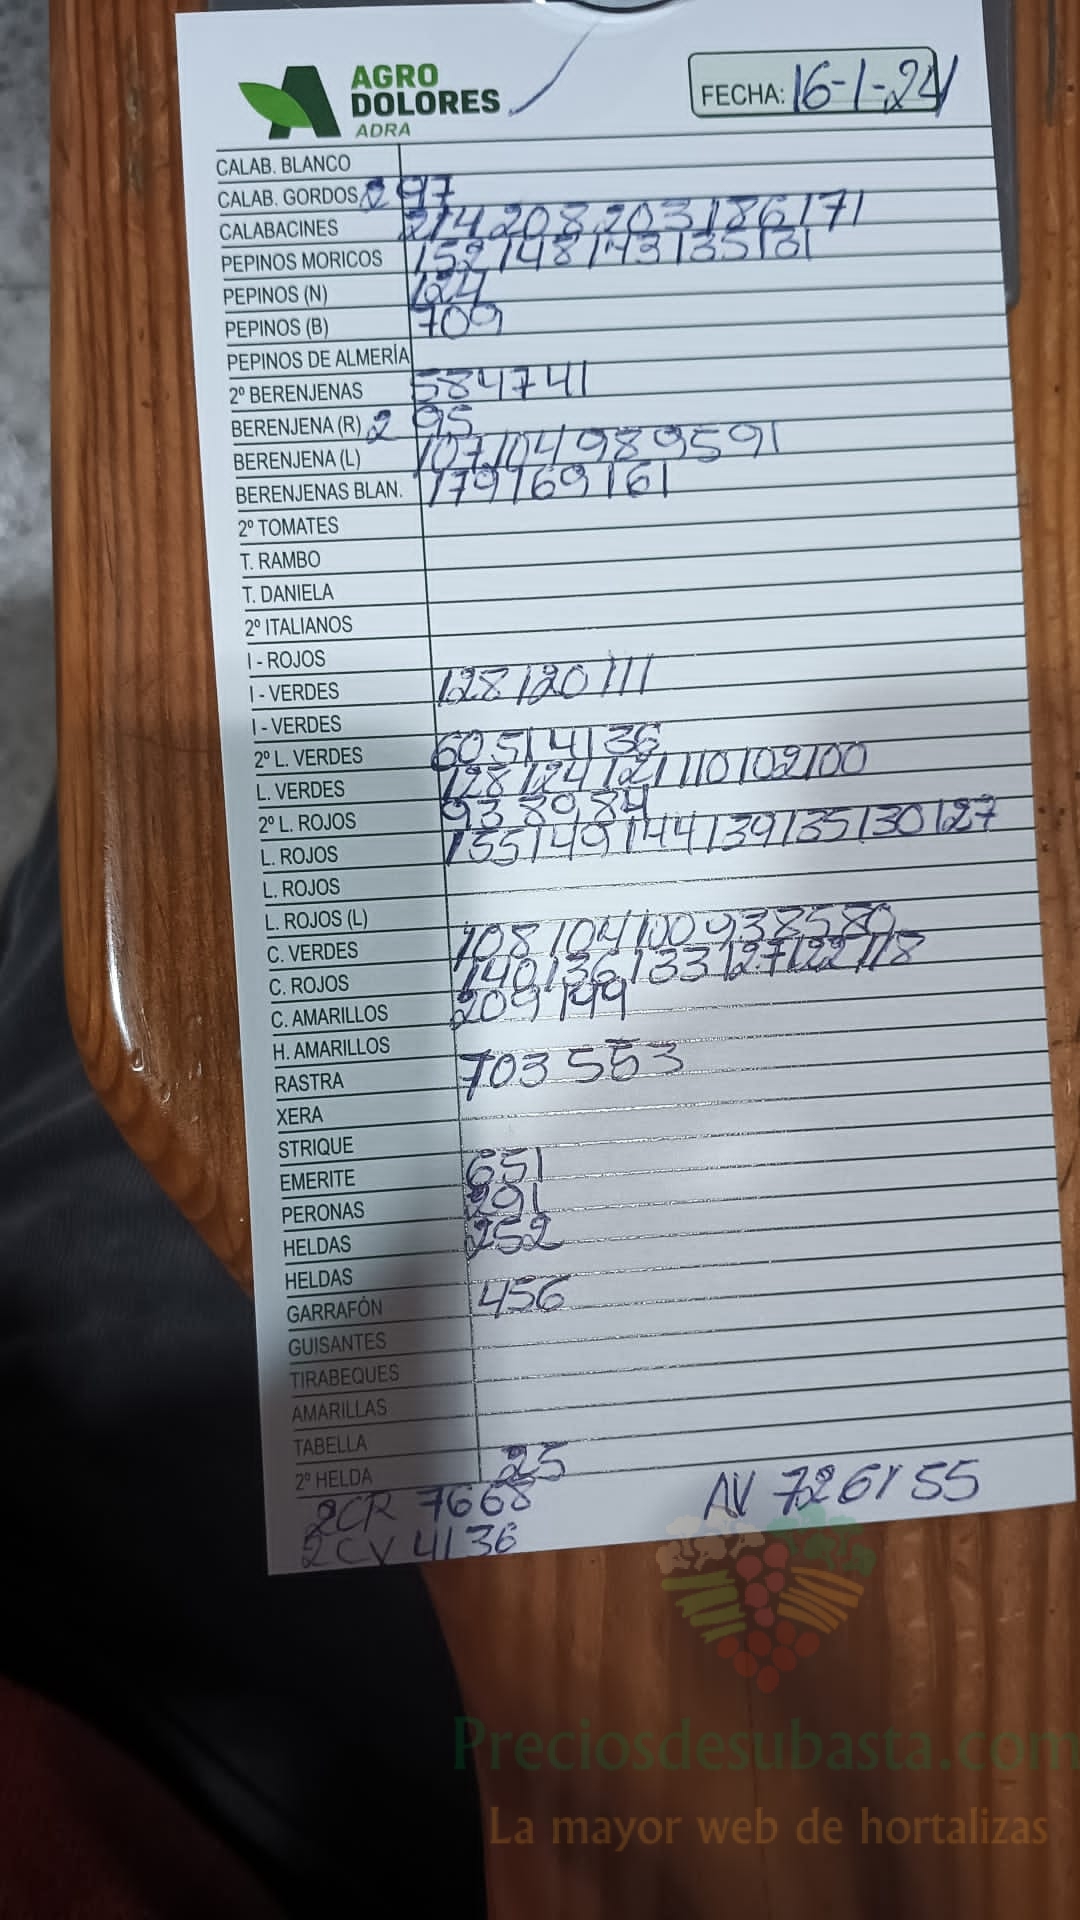 AGRO
DOLORES
ADRA
FECHA: 16-1-24
CALAB. BLANCO
CALAB. GORDOS 2 97
CALABACINES 214 208 203 186 171
PEPINOS MORICOS 152 148 143 135 131
PEPINOS (N) 124
PEPINOS (B) 709
PEPINOS DE ALMERÍA
2º BERENJENAS 58 47 41
BERENJENA (R) 2 95
BERENJENA (L) 107 104 98 95 91
BERENJENAS BLAN. 179 169 161
2º TOMATES
T. RAMBO
T. DANIELA
2º ITALIANOS
I - ROJOS
I - VERDES 128 120 111
I - VERDES
2º L. VERDES 60 51 41 36
L. VERDES 128 124 121 110 102 100
2º L. ROJOS 93 89 84
L. ROJOS 155 149 144 139 135 130 127
L. ROJOS
L. ROJOS (L)
C. VERDES 108 104 100 93 85 80
C. ROJOS 140 136 133 127 122 118
C. AMARILLOS 209 199
H. AMARILLOS
RASTRA 703 553
XERA
STRIQUE
EMERITE 651
PERONAS 291
HELDAS 252
HELDAS
GARRAFÓN 456
GUISANTES
TIRABEQUES
AMARILLAS
TABELLA
2º HELDA 25
2CR 76 68 AV 72 61 55
2CV 41 36
Preciosdesubasta.com
La mayor web de hortalizas